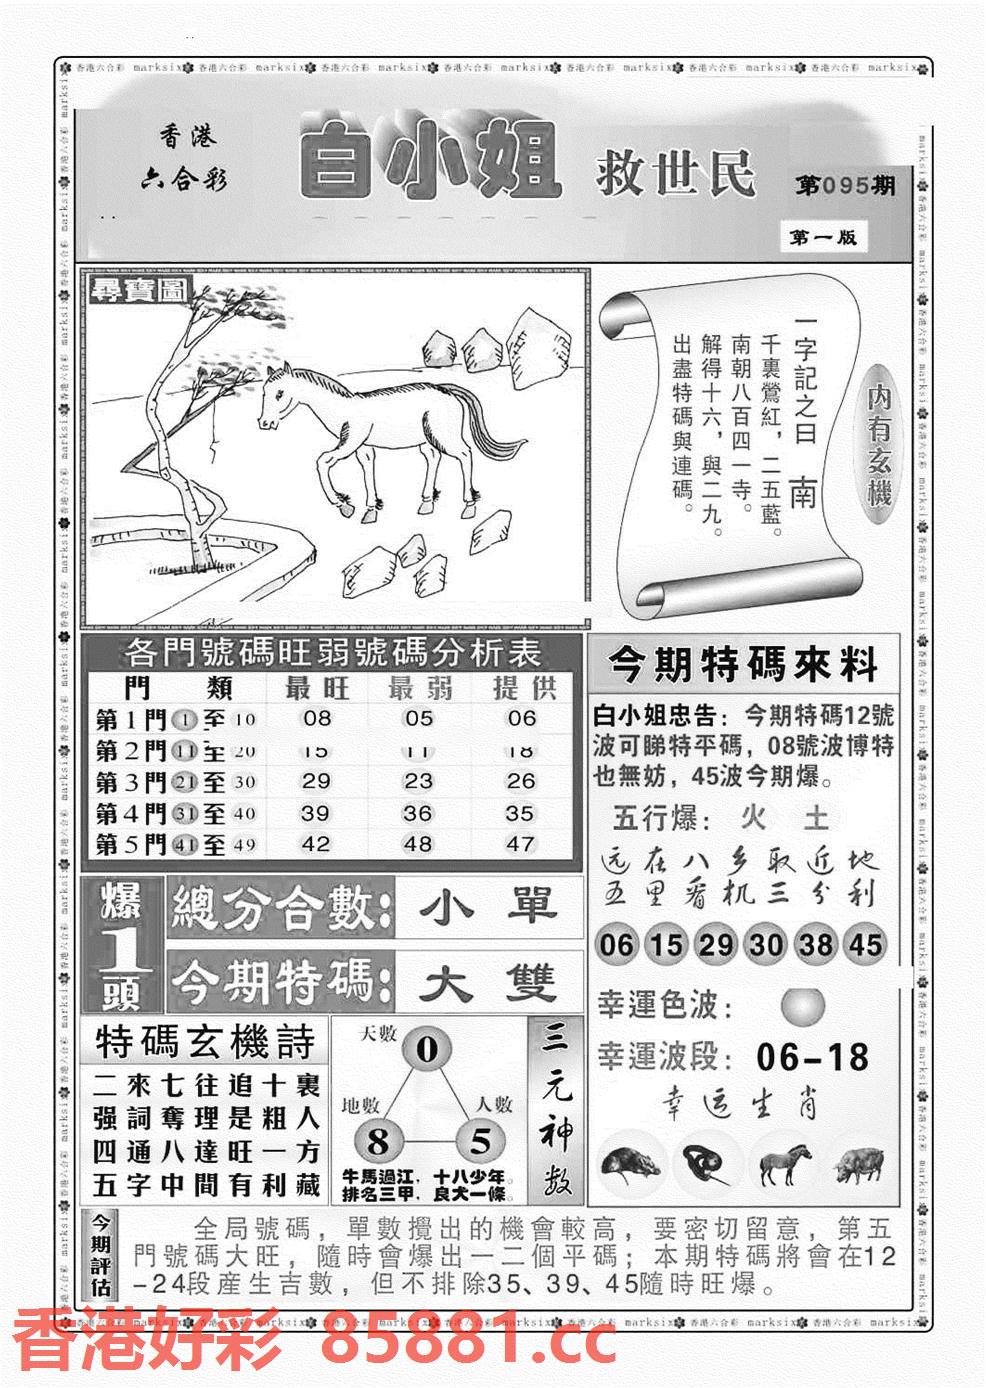 香港六合彩 marksix
香港
六合彩
白小姐 救世民
第095期
第一版
尋寶圖
一字記之曰 南
千裏鶯紅，二五藍。
南朝八百四一寺。
解得十六，與二九。
出盡特碼與連碼。
内有玄機
各門號碼旺弱號碼分析表
門 類 最旺 最弱 提供
第1門 1 至 10 08 05 06
第2門 11 至 20 15 11 18
第3門 21 至 30 29 23 26
第4門 31 至 40 39 36 35
第5門 41 至 49 42 48 47
今期特碼來料
白小姐忠告：今期特碼12號
波可睇特平碼，08號波博特
也無妨，45波今期爆。
五行爆： 火 土
远在八乡取近地
五里看机三分利
06 15 29 30 38 45
幸運色波：
幸運波段：06-18
幸运生肖
爆
1
頭
總分合數：小 單
今期特碼：大 雙
特碼玄機詩
二來七往追十裏
强詞奪理是粗人
四通八達旺一方
五字中間有利藏
天數 0
地數 8
人數 5
牛馬過江，十八少年。
排名三甲，良犬一條。
三元神数
今期評估
全局號碼，單數攪出的機會較高，要密切留意，第五
門號碼大旺，隨時會爆出一二個平碼；本期特碼將會在12
-24段産生吉數，但不排除35、39、45隨時旺爆。
香港好彩 85881.cc